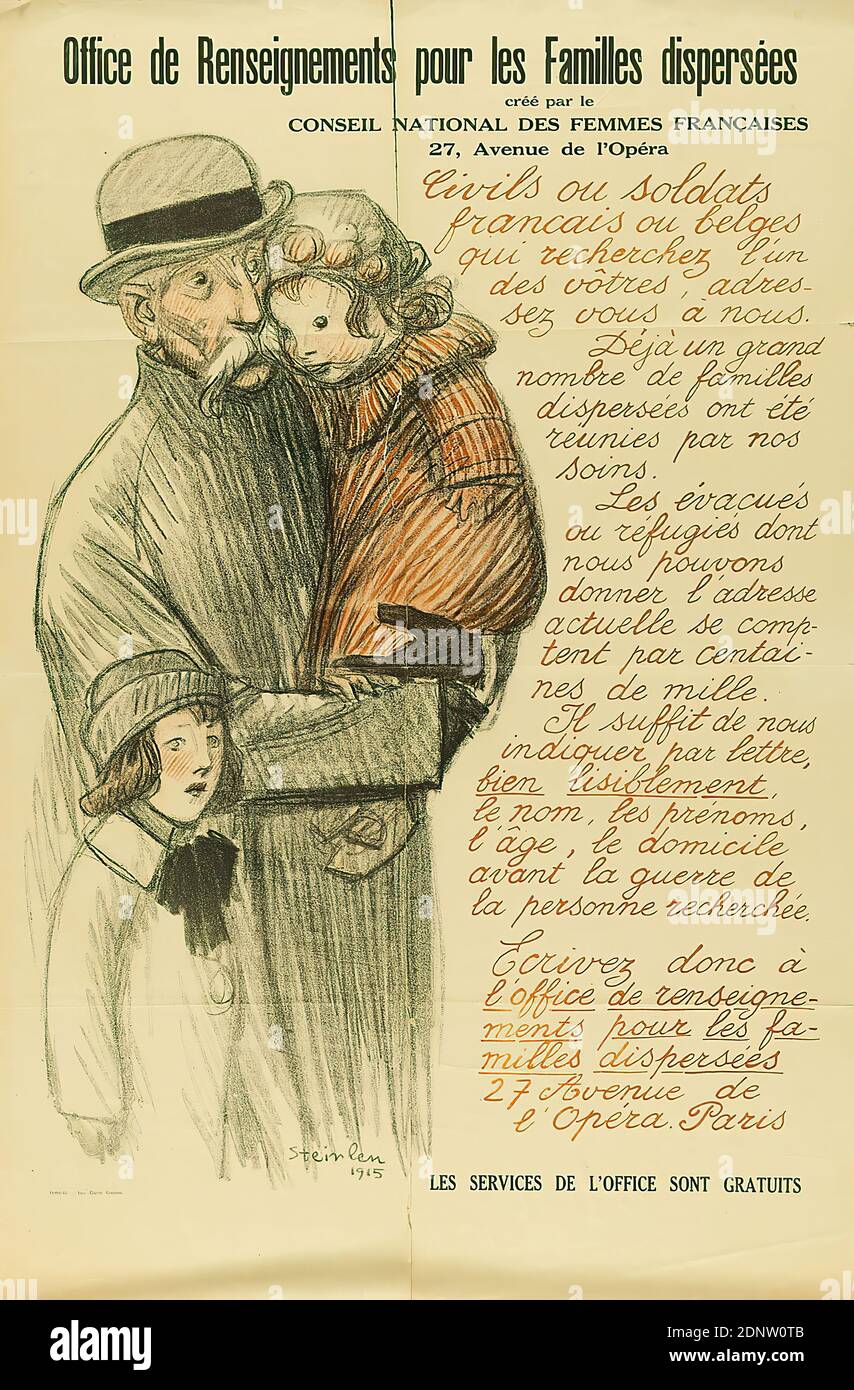 Office de Renseignements pour les Familles dispersées
créé par le
CONSEIL NATIONAL DES FEMMES FRANÇAISES
27, Avenue de l'Opéra
Civils ou soldats
français ou belges
qui recherchez l'un
des vôtres, adres-
sez vous à nous.
Déjà un grand
nombre de familles
dispersées ont été
réunies par nos
soins.
Les évacués
ou réfugiés dont
nous pouvons
donner l'adresse
actuelle se comp-
tent par centai-
nes de mille.
Il suffit de nous
indiquer par lettre,
bien lisiblement,
le nom, les prénoms,
l'âge, le domicile
avant la guerre de
la personne recherchée.
Ecrivez donc à
l'office de renseigne-
ments pour les fa-
milles dispersées
27 Avenue de
l'Opéra. Paris
Steinlen
1915
LES SERVICES DE L'OFFICE SONT GRATUITS
alamy
Image ID: 2DNW0TB
www.alamy.com